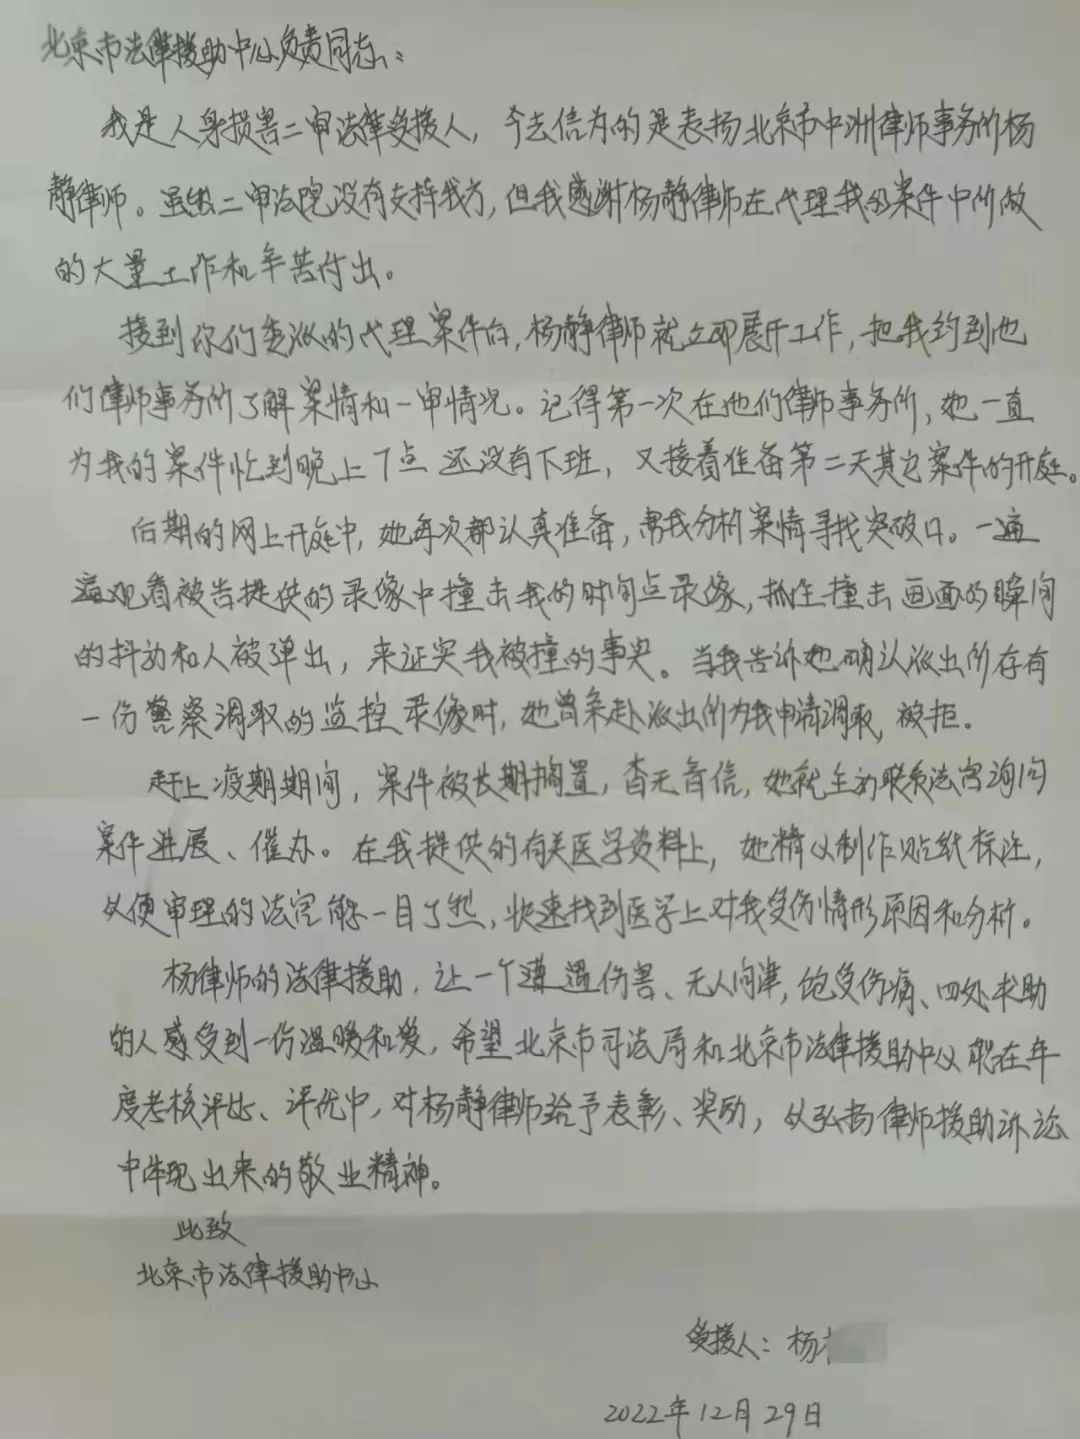 北京市法律援助中心负责同志：
我是人身损害二审法律受援人，今去信为的是表扬北京市中洲律师事务所杨
静律师。虽然二审法院没有支持我方，但我感谢杨静律师在代理我的案件中所做
的大量工作和辛苦付出。
接到你们委派的代理案件后，杨静律师就立即展开工作，把我约到他
们律师事务所了解案情和一审情况。记得第一次在他们律师事务所，她一直
为我的案件忙到晚上7点还没有下班，又接着准备第二天其它案件的开庭。
后期的网上开庭中，她每次都认真准备，帮我分析案情寻找突破口。一遍
遍观看被告提供的录像中撞击我的时间点录像，抓住撞击画面的瞬间
的抖动和人被弹出，来证实我被撞的事实。当我告诉她确认派出所存有
一份警察调取的监控录像时，她曾亲赴派出所为我申请调取，被拒。
赶上疫期期间，案件被长期搁置，杳无音信，她就主动联系法官询问
案件进展、催办。在我提供的有关医学资料上，她精心制作贴纸标注，
以便审理的法官能一目了然，快速找到医学上对我受伤情形原因和分析。
杨律师的法律援助，让一个遭遇伤害、无人问津，饱受伤痛、四处求助
的人感受到一份温暖和爱，希望北京市司法局和北京市法律援助中心能在年
度考核评比、评优中，对杨静律师给予表彰、奖励，以弘扬律师援助诉讼
中体现出来的敬业精神。
此致
北京市法律援助中心
受援人：杨
2022年12月29日